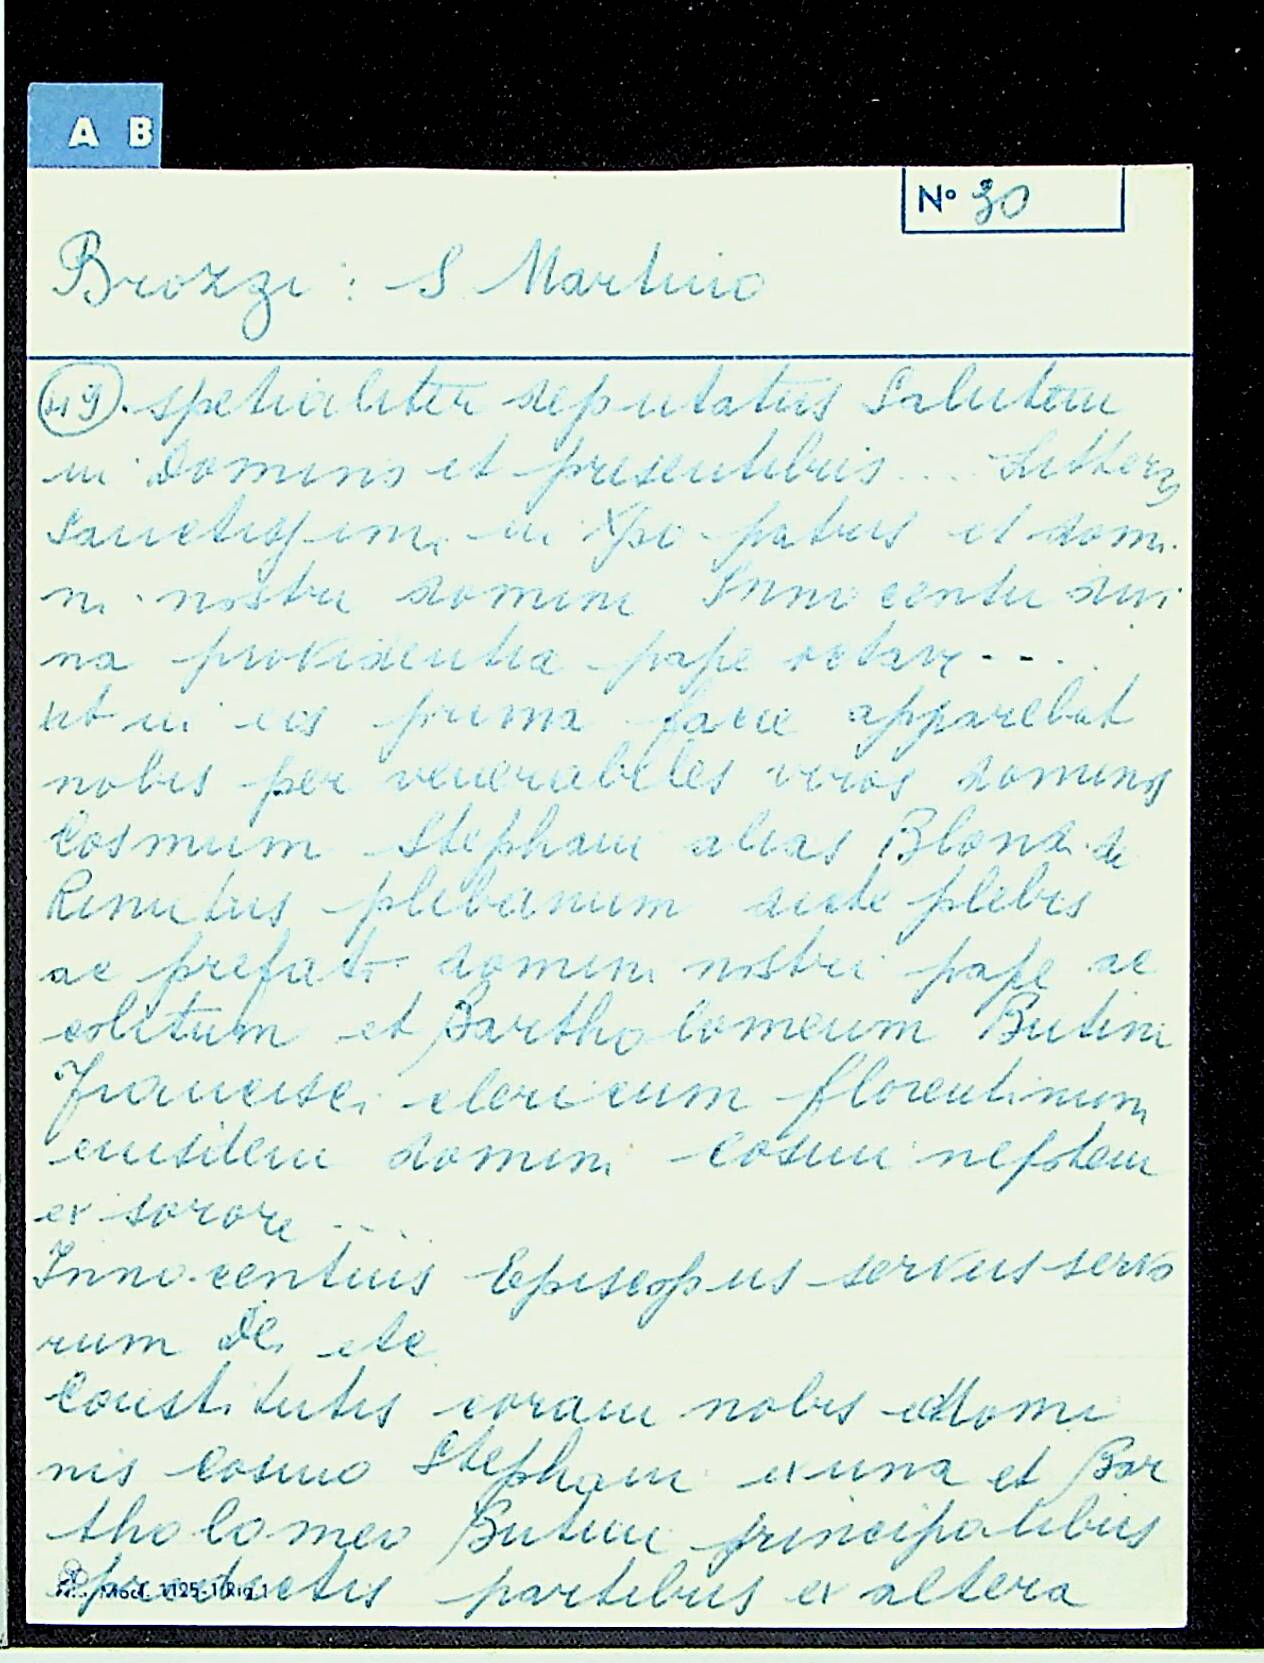 A B
N° 30
Brozzi: S Martino
(49). spetialiter deputatus Salutem
in Domino et presentibus .... Litteris
Sanctissimi in Xpo patris et domi
ni nostri domini Innocentii divi
na providentia pape octavi ....
ut in eis prima facie apparebat
nobis per venerabiles viros dominos
Cosmum Stephani alias Blond. de
plebanum dicte plebis
ac prefati domini nostri pape ac
colitum et Bartholomeum Butini
Francisci clericum florentinum
eiusdem domini Cosmi nepotem
ex sorore ....
Innocentius Episcopus servus servo
rum Dei etc
Constitutis coram nobis domi
nis Cosmo Stephani ex una et Bar
tholomeo Butini principalibus
predictis partibus ex altera
Mod. 1125-1 Rig. 1